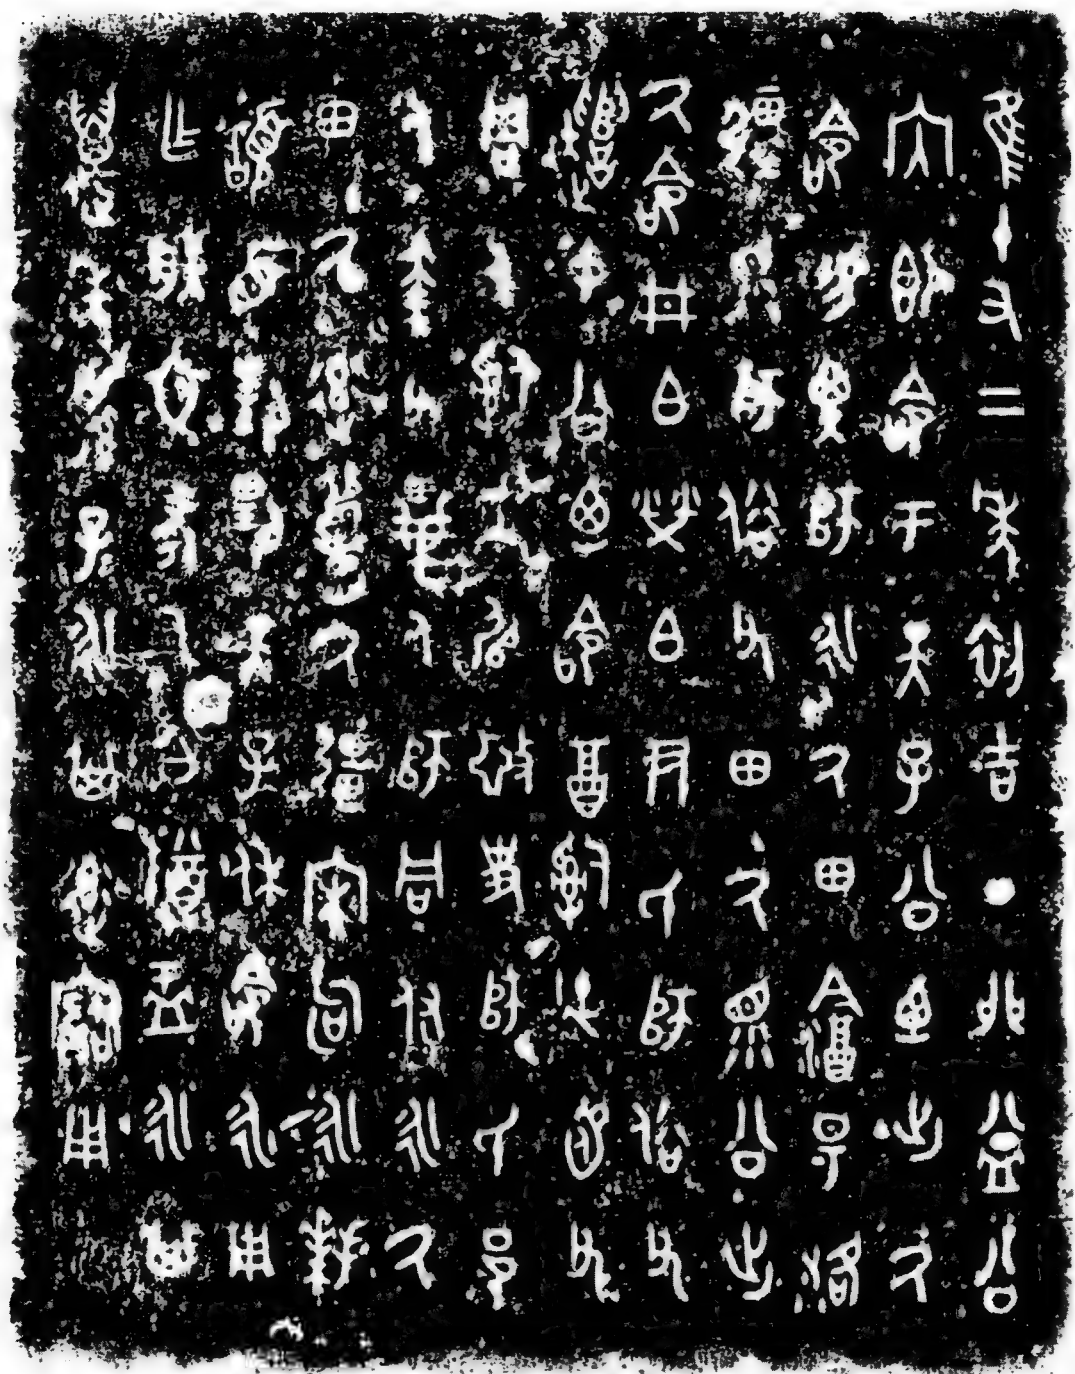 隹十又二年初吉丁卯益公
內即命于天子公迺出厥
命易畀師永厥田陰昜洛
疆眔師俗父田厥眔公出
厥命井白焚白尹氏師俗父
遣中公迺命酉𤔲徒圅父
周人𤔲工眉致史師氏邑
人奎父畢人師同付永厥
田厥率履厥疆宋句永拜
𩒨首對揚天子休命永用
乍朕文考乙白尊盂永其
萬年孫孫子子永其率寶用